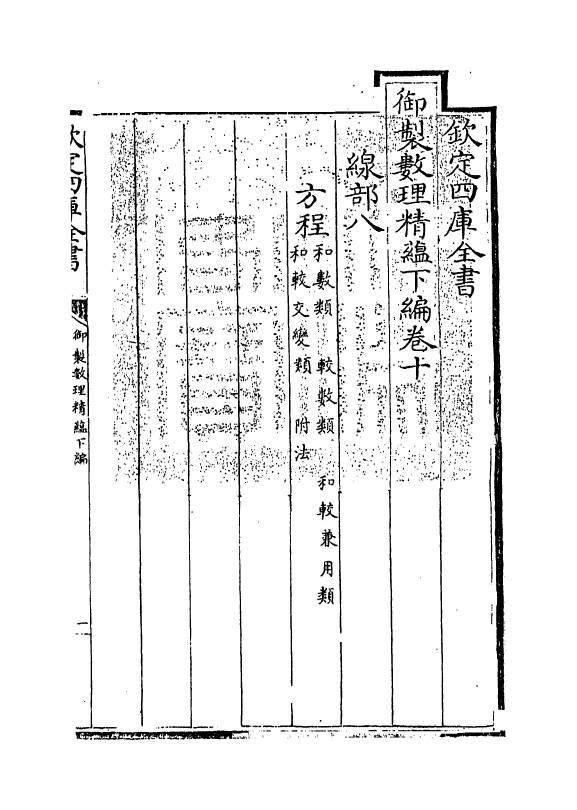 欽定四庫全書
御製數理精蘊下編卷十
線部八
方程
和數類　較數類　和較兼用類
和較交變類　附法
欽定四庫全書
御製數理精蘊下編
一